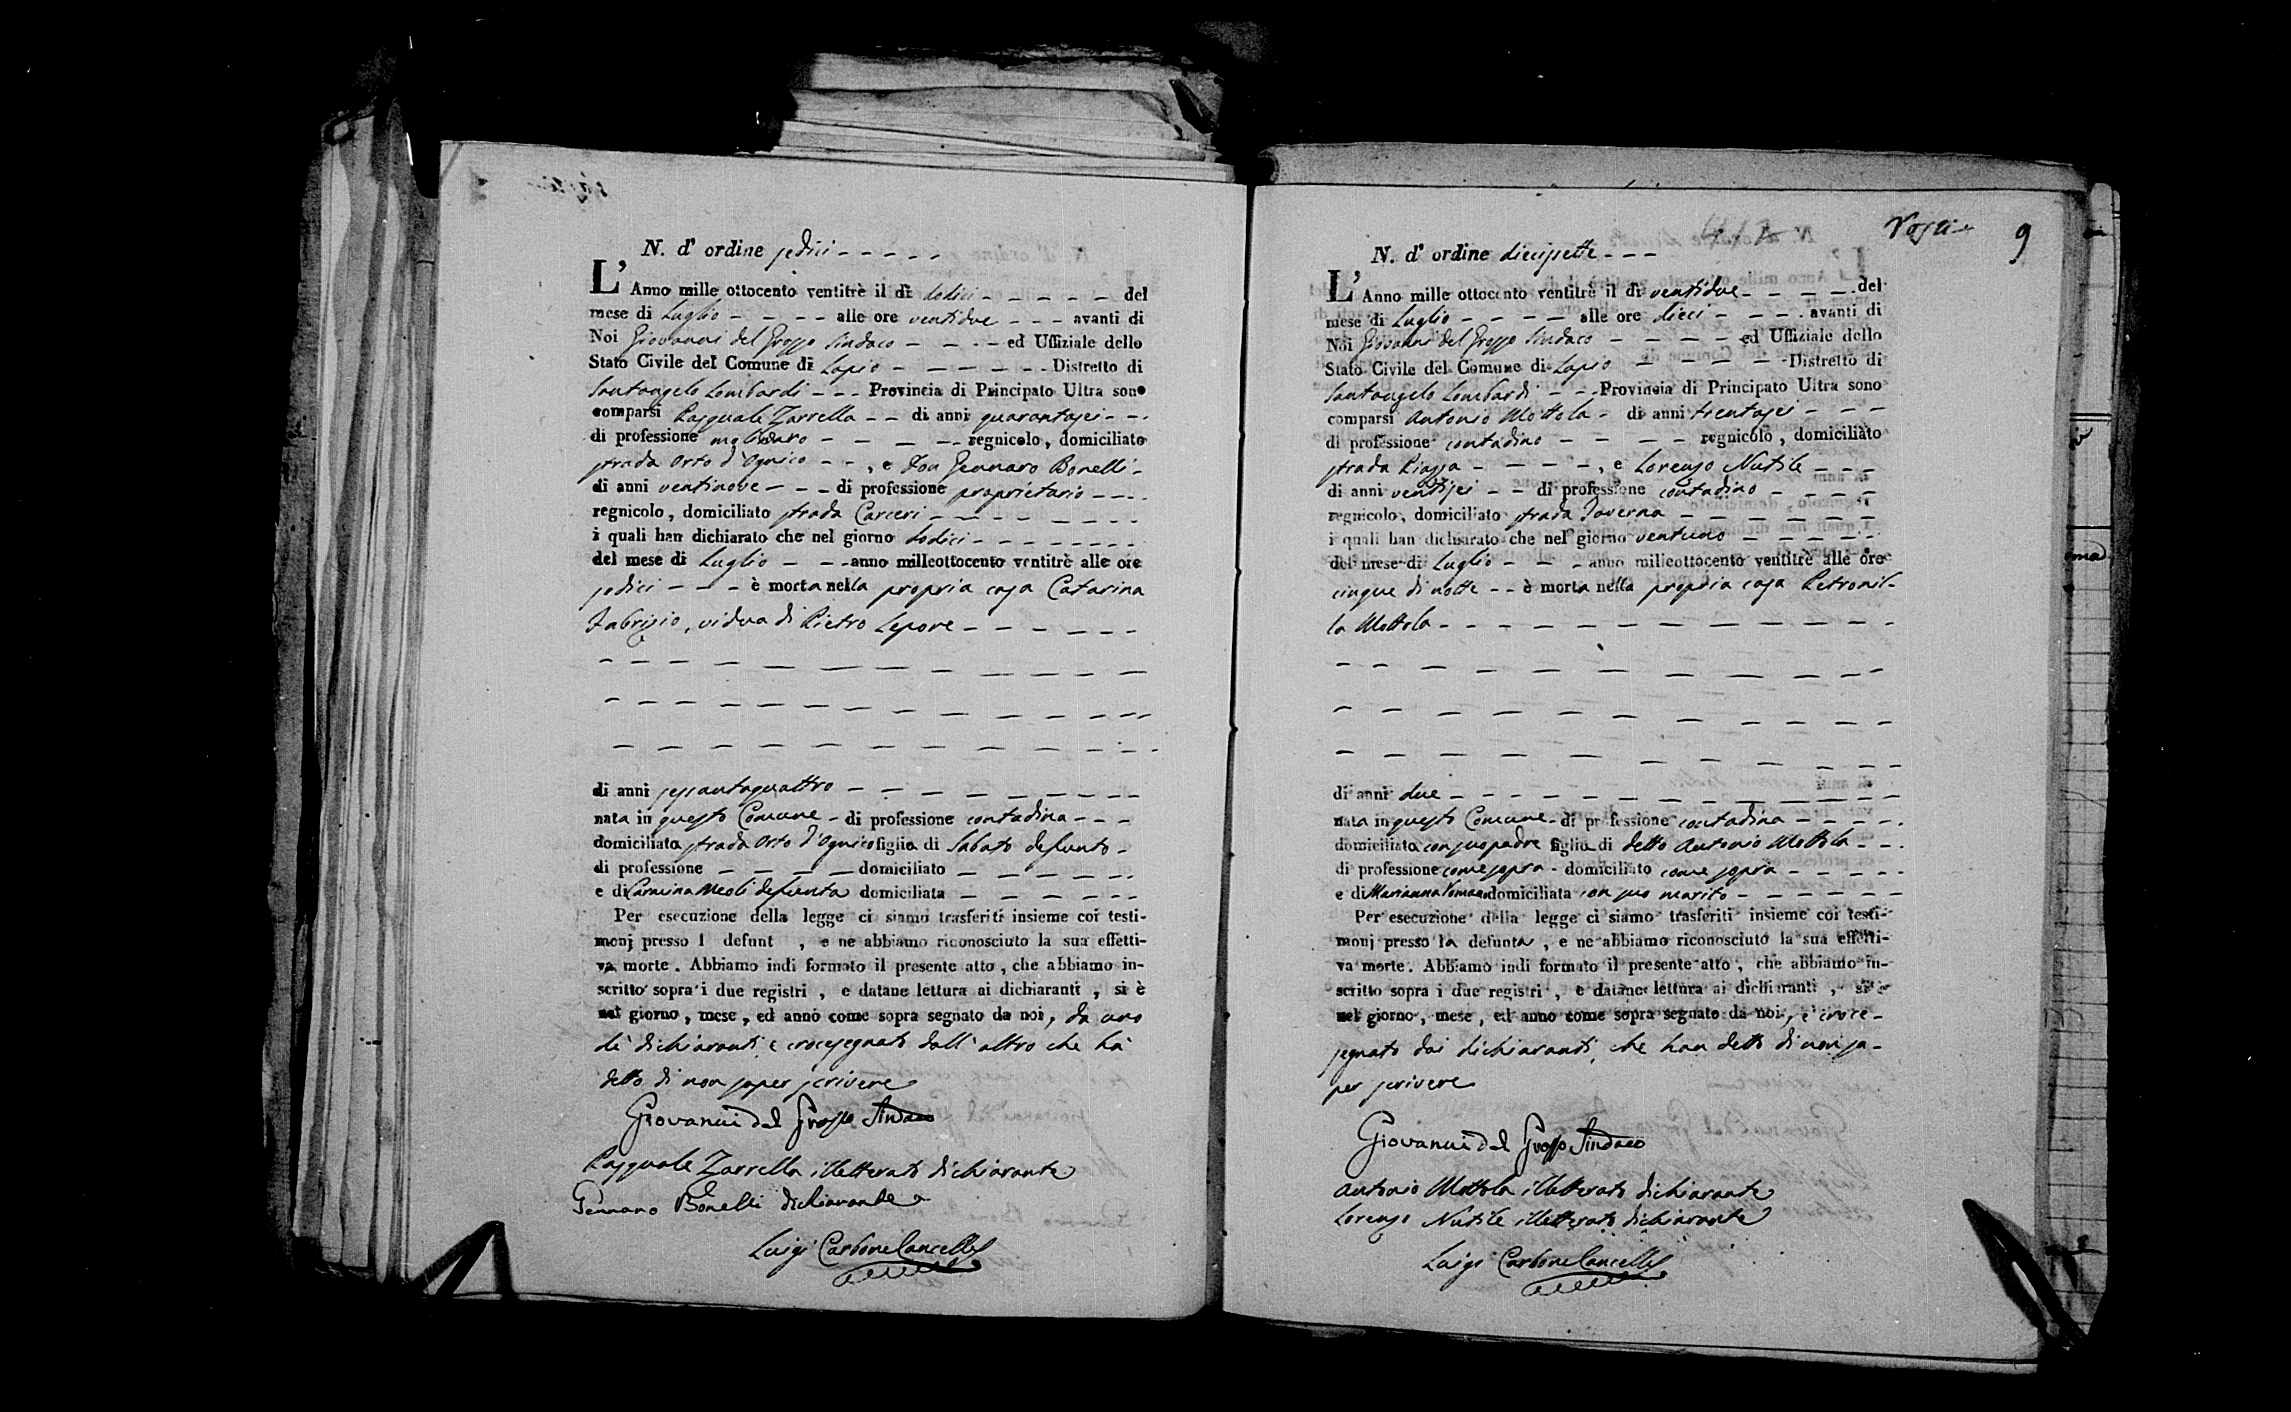 N. d' ordine sedici
L' Anno mille ottocento ventitrè il dì dodici del
mese di Luglio alle ore ventidue avanti di
Noi Giovanni del Grosso Sindaco ed Uffiziale dello
Stato Civile del Comune di Lapio Distretto di
Santangelo Lombardi Provincia di Principato Ultra sono
comparsi Pasquale Zarrella di anni quarantasei
di professione molinaro regnicolo, domiciliato
strada Orto d'Ognico, e Don Gennaro Bonelli
di anni ventinove di professione proprietario
regnicolo, domiciliato strada Carceri
i quali han dichiarato che nel giorno dodici
del mese di Luglio anno milleottocento ventitrè alle ore
sedici è morta nella propria casa Catarina
Fabrizio, vidua di Pietro Lepore
di anni sessantaquattro
nata in questo Comune di professione contadina
domiciliata strada Orto d'Ognico figlia di Sabato defunto
di professione domiciliato
e di Carmina Meoli defunta domiciliata
Per esecuzione della legge ci siamo trasferiti insieme coi testi-
monj presso l defunt , e ne abbiamo riconosciuto la sua effetti-
va morte. Abbiamo indi formato il presente atto, che abbiamo in-
scritto sopra i due registri, e datane lettura ai dichiaranti, si è
nel giorno, mese, ed anno come sopra segnato da noi, da uno
de' dichiaranti e crocesegnato dall'altro che ha
detto di non saper scrivere
Giovanni del Grosso Sindaco
Pasquale Zarrella illetterato dichiarante
Gennaro Bonelli dichiarante
Luigi Carbone Cancell
9
N. d' ordine diecisette
L' Anno mille ottocento ventitrè il dì ventidue del
mese di Luglio alle ore dieci avanti di
Noi Giovanni del Grosso Sindaco ed Uffiziale dello
Stato Civile del Comune di Lapio Distretto di
Santangelo Lombardi Provincia di Principato Ultra sono
comparsi Antonio Mottola di anni trentasei
di professione contadino regnicolo, domiciliato
strada Piazza, e Lorenzo Nutile
di anni ventisei di professione contadino
regnicolo, domiciliato strada Taverna
i quali han dichiarato che nel giorno ventuno
del mese di Luglio anno milleottocento ventitrè alle ore
cinque di notte è morta nella propria casa Petronil-
la Mottola
di anni due
nata in questo Comune di professione contadina
domiciliata con suo padre figlia di detto Antonio Mottola
di professione come sopra domiciliato come sopra
e di Marianna domiciliata con suo marito
Per esecuzione della legge ci siamo trasferiti insieme coi testi-
monj presso la defunta, e ne abbiamo riconosciuto la sua effetti-
va morte. Abbiamo indi formato il presente atto, che abbiamo in-
scritto sopra i due registri, e datane lettura ai dichiaranti, si è
nel giorno, mese, ed anno come sopra segnato da noi, e croce-
segnato dai dichiaranti, che han detto di non sa-
per scrivere
Giovanni del Grosso Sindaco
Antonio Mottola illetterato dichiarante
Lorenzo Nutile illetterato dichiarante
Luigi Carbone Cancell